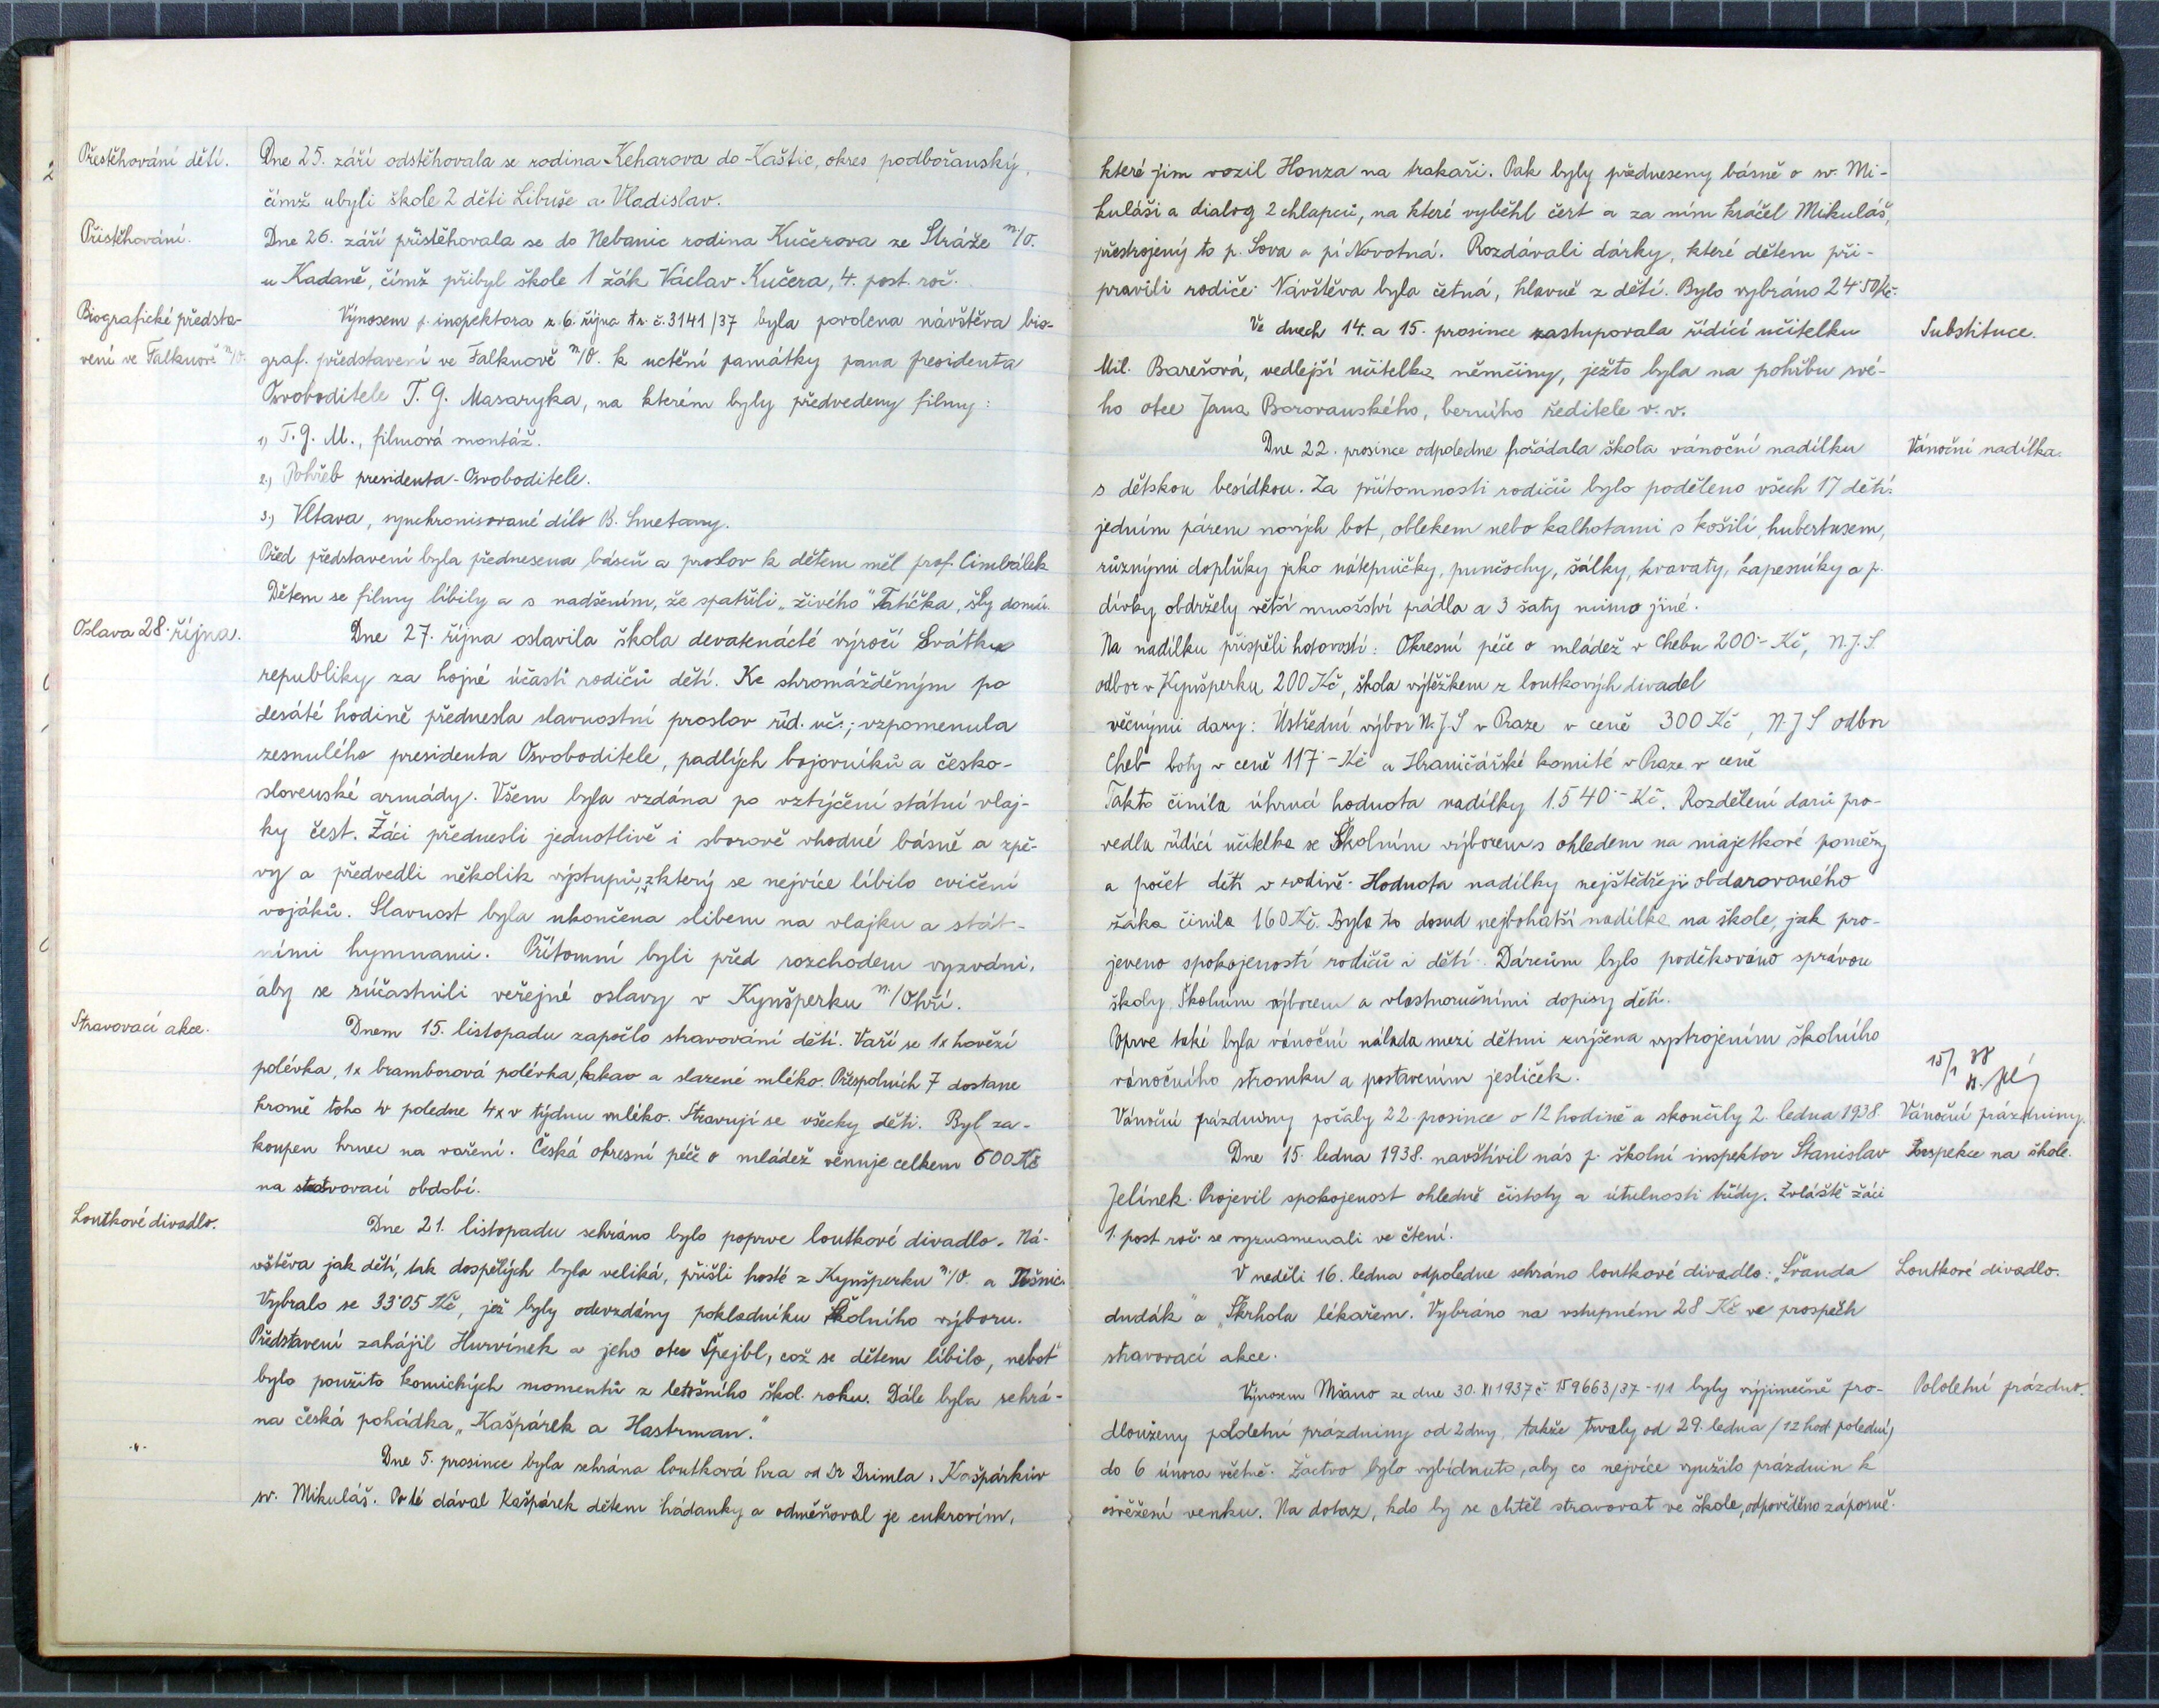 Přestěhování dětí.
Dne 25. září odstěhovala se rodina Keharova do Kaštic, okres podbořanský,
čímž ubyli škole 2 děti Libuše a Vladislav.
Přistěhování.
Dne 26. září přistěhovala se do Nebanic rodina Kučerova ze Stráže n/O.
u Kadaně, čímž přibyl škole 1 žák Václav Kučera, 4. post. roč.
Biografické předsta-
vení ve Falknově n/O.
Výnosem p. inspektora z 6. října tr. č. 3141/37 byla povolena návštěva bio-
graf. představení ve Falknově n/O. k uctění památky pana presidenta
Osvoboditele T. G. Masaryka, na kterém byly předvedeny filmy:
1) T. G. M., filmová montáž.
2.) Pohřeb presidenta-Osvoboditele.
3.) Vltava, synchronisované dílo B. Smetany.
Před představení byla přednesena báseň a proslov k dětem měl prof. Cimbálek
Dětem se filmy líbily a s nadšením, že spatřili „živého" Tatíčka, šly domů.
Oslava 28. října.
Dne 27. října oslavila škola devatenácté výročí Svátku
republiky za hojné účasti rodičů dětí. Ke shromážděným po
desáté hodině přednesla slavnostní proslov říd. uč.; vzpomenula
zesnulého presidenta Osvoboditele, padlých bojovníků a česko-
slovenské armády. Všem byla vzdána po vztyčení státní vlaj-
ky čest. Žáci přednesli jednotlivě i sborově vhodné básně a zpě-
vy a předvedli několik výstupů, z který se nejvíce líbilo cvičení
vojáků. Slavnost byla ukončena slibem na vlajku a stát-
ními hymnami. Přítomní byli před rozchodem vyzváni,
aby se súčastnili veřejné oslavy v Kynšperku n./Ohří.
Stravovací akce.
Dnem 15. listopadu započlo stravování dětí. Vaří se 1x hovězí
polévka, 1x bramborová polévka, kakao a slazené mléko. Přespolních 7 dostane
kromě toho v poledne 4x v týdnu mléko. Stravují se všecky děti. Byl za-
koupen hrnec na vaření. Česká okresní péče o mládež věnuje celkem 600 Kč
na stravovací období.
Loutkové divadlo.
Dne 21. listopadu sehráno bylo poprve loutkové divadlo. Ná-
vštěva jak dětí, tak dospělých byla veliká, přišli hosté z Kynšperku n/O. a Tošnic.
Vybralo se 33˙05 Kč, jež byly odevzdány pokladníku školního výboru.
Představení zahájil Hurvínek a jeho otec Špejbl, což se dětem líbilo, neboť
bylo použito komických momentů z letošního škol. roku. Dále byla sehrá-
na česká pohádka „Kašpárek a Hastrman."
-"-
Dne 5. prosince byla sehrána loutková hra od Dr Drimla, Kašpárkův
sv. Mikuláš. Poté dával Kašpárek dětem hádanky a odměňoval je cukrovím,
které jim vozil Honza na trakaři. Pak byly předneseny básně o sv. Mi-
kuláši a dialog 2 chlapců, na které vyběhl čert a za ním kráčel Mikuláš,
přestrojený to p. Sova a pí Novotná. Rozdávali dárky, které dětem při-
pravili rodiče. Návštěva byla četná, hlavně z dětí. Bylo vybráno 24˙50 Kč.
Ve dnech 14. a 15. prosince zastupovala řídící učitelku
Substituce.
Mil. Barešová, vedlejší učitelka němčiny, ježto byla na pohřbu své-
ho otce Jana Borovanského, berního ředitele v. v.
Dne 22. prosince odpoledne pořádala škola vánoční nadílku
Vánoční nadílka.
s dětskou besídkou. Za přítomnosti rodičů bylo poděleno všech 17 dětí:
jedním párem nových bot, oblekem nebo kalhotami s košilí, hubertusem,
různými doplňky jako nátepničky, punčochy, šálky, kravaty, kapesníky a p.
dívky obdržely větší množství prádla a 3 šaty mimo jiné.
Na nadílku přispěli hotovostí: Okresní péče o mládež v Chebu 200˙- Kč, N. J. S.
odbor v Kynšperku 200 Kč, škola výtěžkem z loutkových divadel
věcnými dary: Ústřední výbor N. J. S v Praze v ceně 300 Kč, N. J S odbor
Cheb boty v ceně 117˙- Kč a Hraničářské komité v Praze v ceně
Takto činila úhrnná hodnota nadílky 1.540˙- Kč. Rozdělení darů pro-
vedla řídící učitelka se školním výborem s ohledem na majetkové poměry
a počet dětí v rodině. Hodnota nadílky nejštědřeji obdarovaného
žáka činila 160 Kč. Byla to dosud nejbohatší nadílka na škole, jak pro-
jeveno spokojeností rodičů i dětí. Dárcům bylo poděkováno správou
školy, školním výborem a vlastnoručními dopisy dětí.
Poprve také byla vánoční nálada mezi dětmi zvýšena vystrojením školního
vánočního stromku a postavením jesliček.
15/1 38
Vánoční prázdniny počaly 22. prosince o 12 hodině a skončily 2. ledna 1938.
Vánoční prázdniny.
Dne 15. ledna 1938. navštívil nás p. školní inspektor Stanislav
Inspekce na škole.
Jelínek. Projevil spokojenost ohledně čistoty a útulnosti třídy. Zvláště žáci
1. post. roč. se vyznamenali ve čtení.
V neděli 16. ledna odpoledne sehráno loutkové divadlo: „Švanda
Loutkové divadlo.
dudák" a „Škrhola lékařem." Vybráno na vstupném 28 Kč ve prospěch
stravovací akce.
Výnosem Mšano ze dne 30. XI 1937 č. 159663/37-I/1 byly výjimečně pro-
Pololetní prázdno.
dlouženy pololetní prázdniny od 2 dny, takže trvaly od 29. ledna /12 hod polední/
do 6 února včetně. Žactvo bylo vybídnuto, aby co nejvíce využilo prázdnin k
osvěžení venku. Na dotaz, kdo by se chtěl stravovat ve škole, odpověděno záporně.